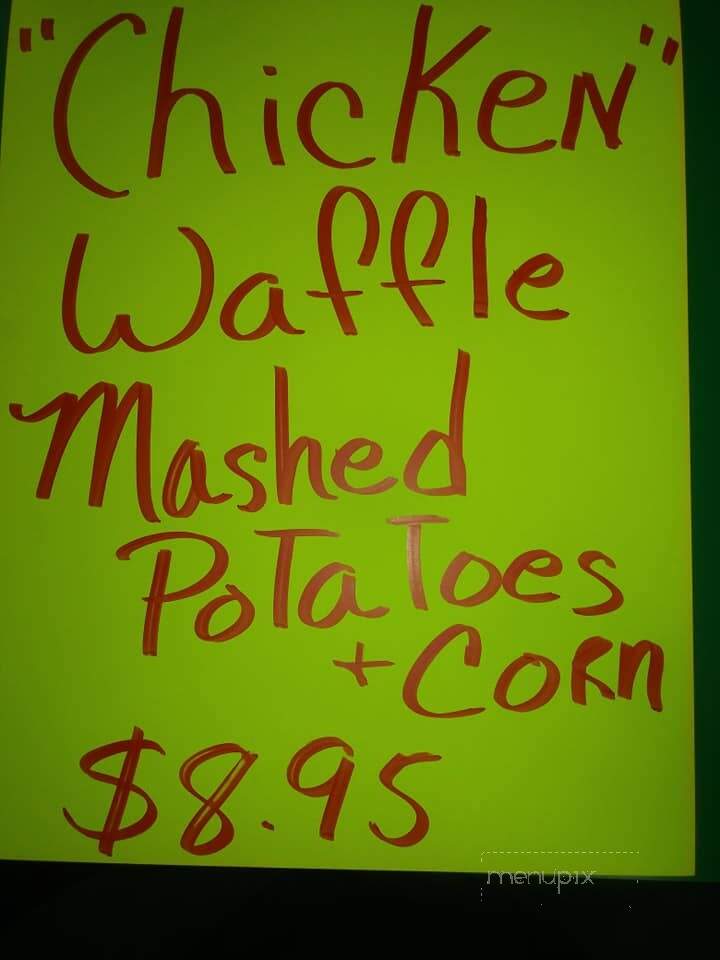 "Chicken"
Waffle
Mashed
Potatoes
+ Corn
$8.95
menupix